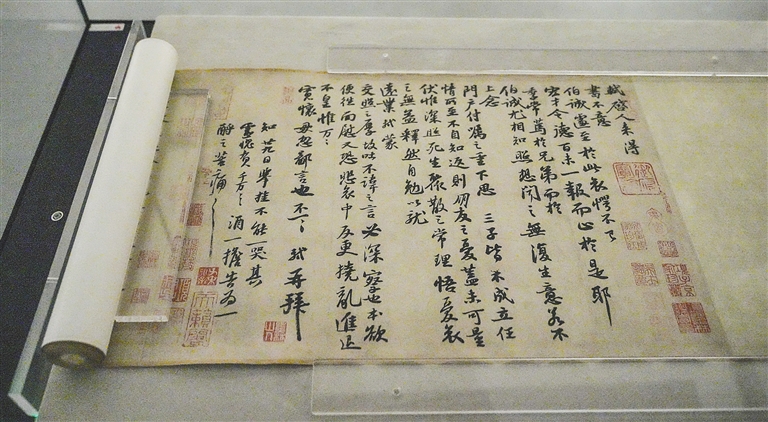 軾啓人來得
書不意
伯誠遽至於此哀愕不已
宏才令德百未一報而止於是耶
季常篤於兄弟而於
伯誠尤相知照想聞之無復生意若不
上念
門户付囑之重下思三子皆未成立任
情所至不自知返則朋友之憂蓋未可量
伏惟深照死生聚散之常理悟憂哀
之無益釋然自勉以就
遠業軾蒙
交照之厚故吐不諱之言必深察也本欲
便往面慰又恐悲哀中反更撓亂進退
不皇惟万万
寬懷毋忽鄙言也不一一軾再拜
知廿九日舉掛不能一哭其
靈愧負千万千万酒一擔告爲一
酹之苦痛苦痛